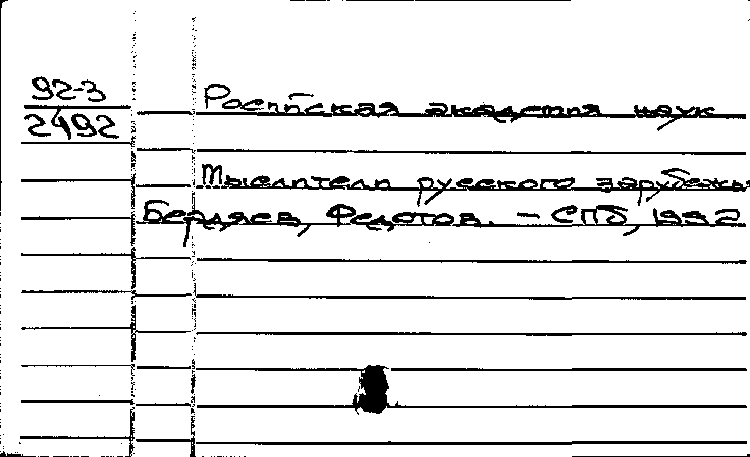 92-3
2492
Российская академия наук
Мыслители русского зарубежья
Бердяев, Федотов. - СПб, 1992